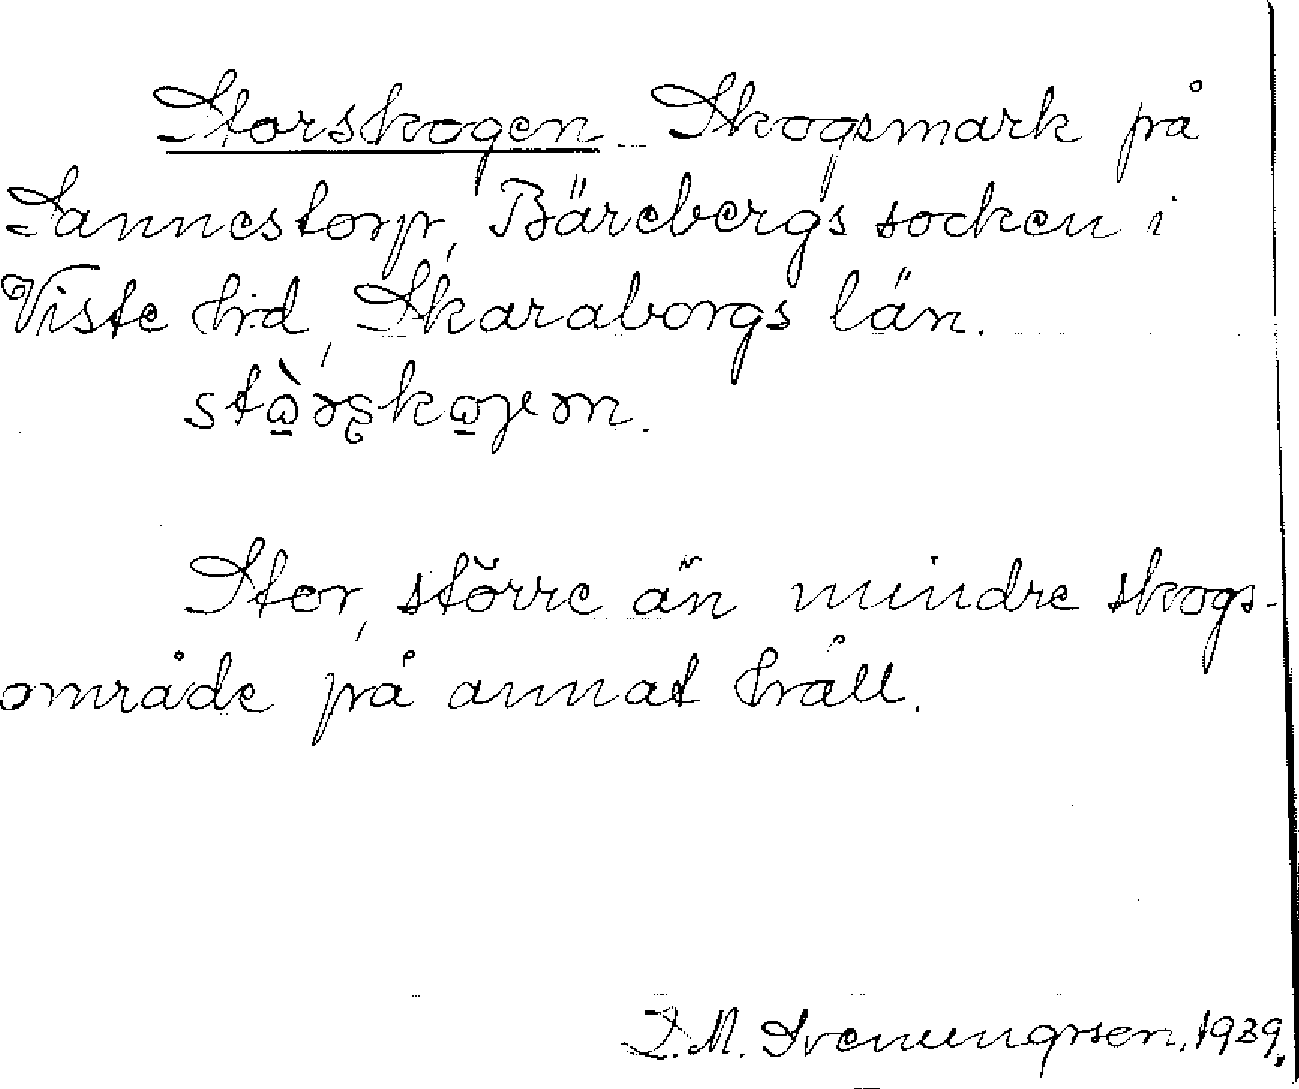 Storskogen Skogsmark på
Sannestorp, Bärebergs socken i
Viste hd, Skaraborgs län.
Stor, större än mindre skogs-
område på annat håll.
1939.